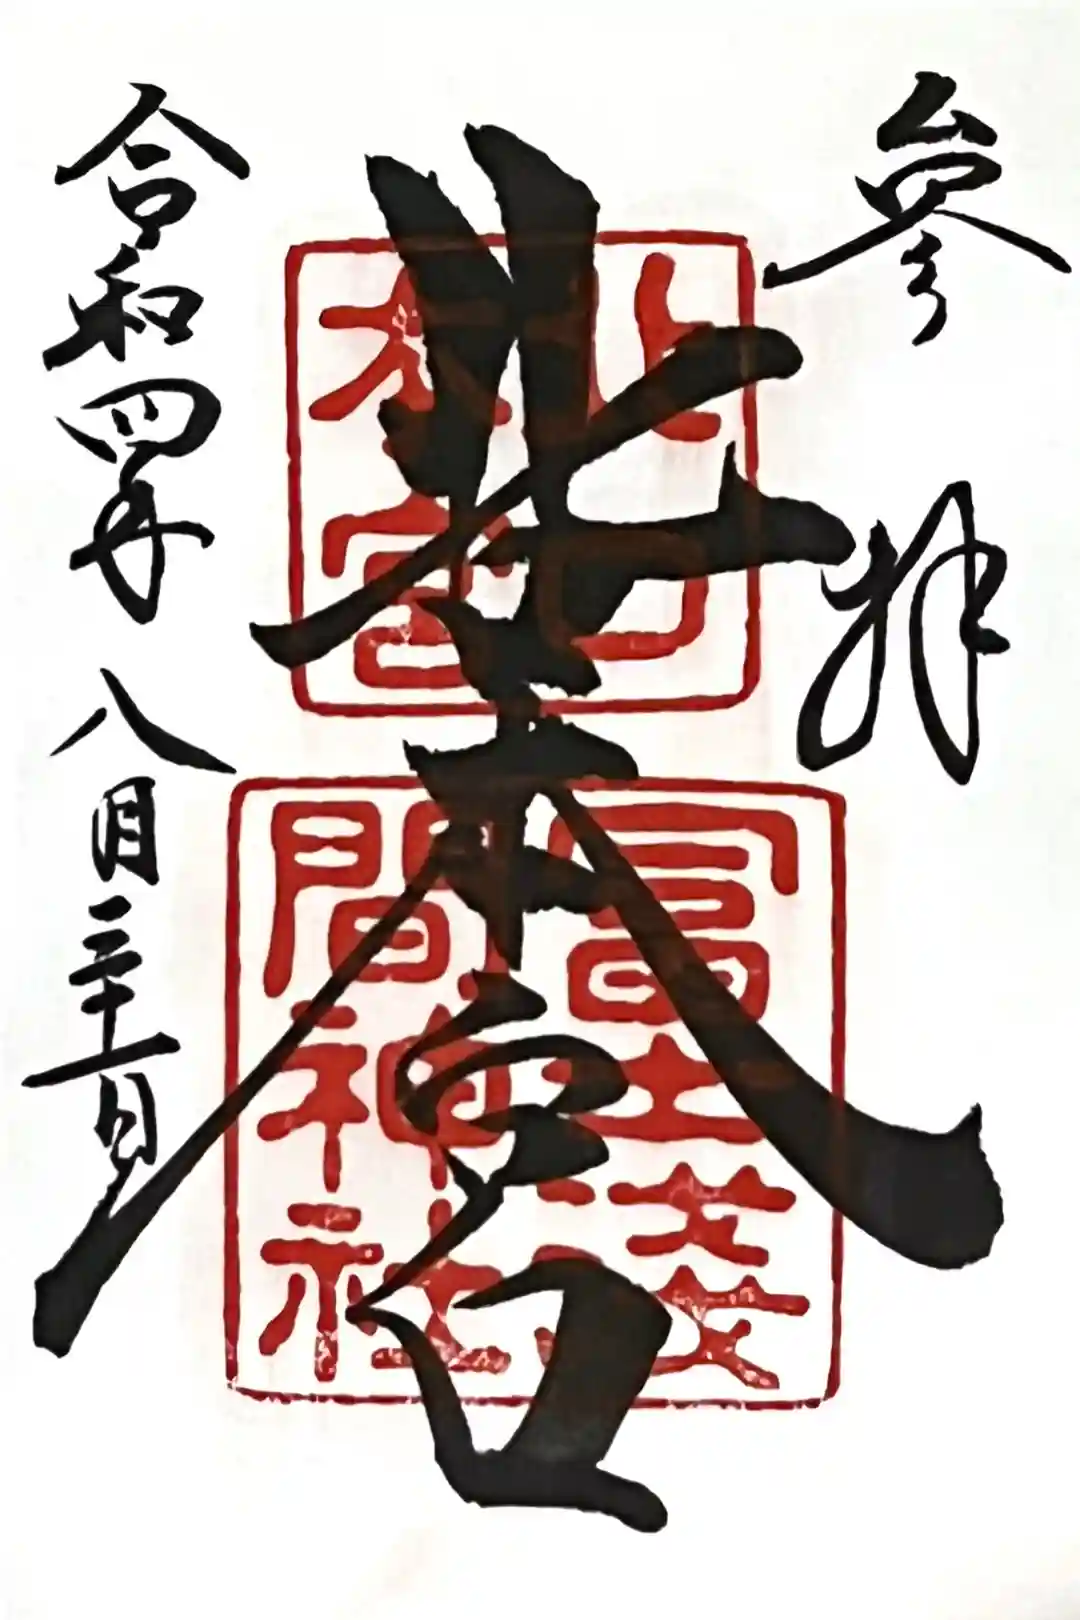 參拜
北口本宮
北口
本宮
冨士淺
間神社
令和四年八月三十一日